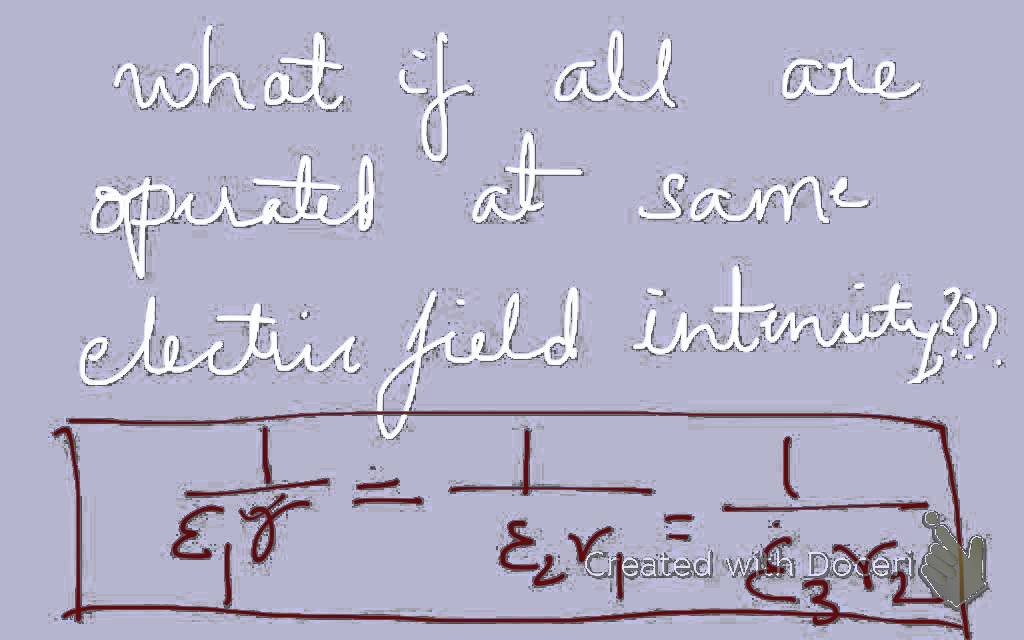 what if all are
operated at same
electric field intensity???
1/ε₁r = 1/ε₂r₁ = 1/ε₃r₂
Created with Doceri